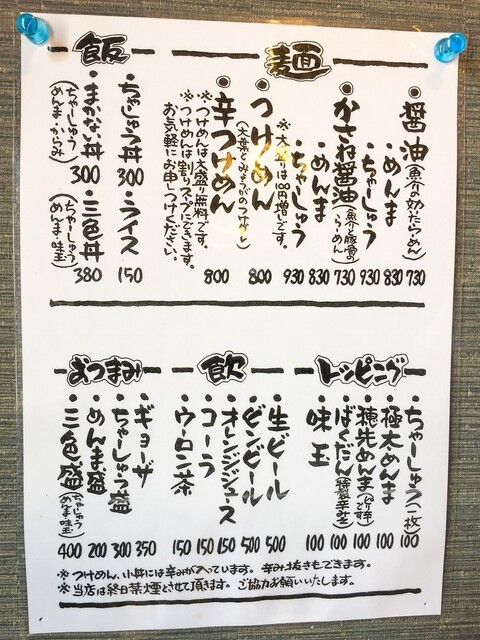 麺
・醤油(魚介が効いたらーめん) 730
・めんま 830
・ちゃーしゅう 930
・かさね醤油(魚介と豚骨のらーめん) 730
・めんま 830
・ちゃーしゅう 930
※大盛りは100円増です。
・つけめん 800
(大葉とみょうがのつけダレ)
・辛つけめん 800
※つけめんは大盛り無料です。
※つけめんは割りスープにできます。
お気軽にお申しつけください。
飯
・ちゃしゅう丼 300
・ライス 150
・まかない丼 300
(ちゃーしゅう めんま・からみ)
・三色丼 380
(ちゃーしゅう めんま・味玉)
トッピング
・ちゃーしゅう(一枚) 100
・極太めんま 100
・穂先めんま(ピリ辛です) 100
・ばくだん(特製辛みそ) 100
・味玉 100
飲
・生ビール 500
・ビンビール 500
・オレンジジュース 150
・コーラ 150
・ウーロン茶 150
おつまみ
・ギョーザ 350
・ちゃーしゅう盛 300
・めんま盛 200
・三色盛(ちゃーしゅう めんま 味玉) 400
※つけめん、小丼には辛みが入っています。辛み抜きもできます。
※当店は終日禁煙とさせて頂きます。ご協力お願いいたします。